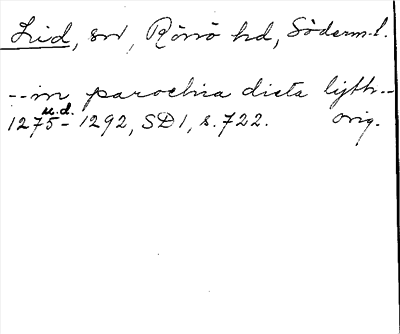 Lid, sn, Rönö hd, Söderm.l.
--in parochia dicta lijth.--
u.d.
1275-1292, SD1, s.722. orig.